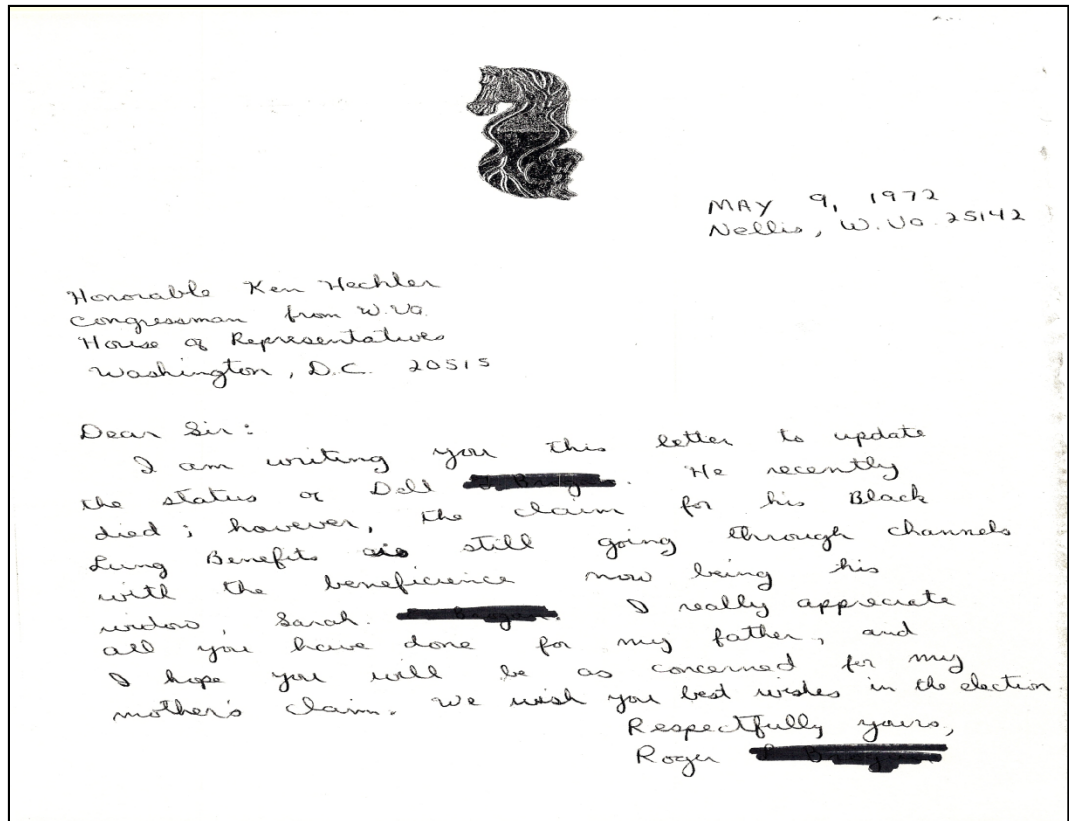 MAY 9, 1972
Nellis, W. Va. 25142
Honorable Ken Hechler
Congressman from W. Va.
House of Representatives
Washington, D.C. 20515
Dear Sir:
I am writing you this letter to update
the status of Dell . He recently
died; however, the claim for his Black
Lung Benefits is still going through channels
with the beneficience now being his
widow, Sarah. I really appreciate
all you have done for my father, and
I hope you will be as concerned for my
mother's claim. We wish you best wishes in the election.
Respectfully yours,
Roger